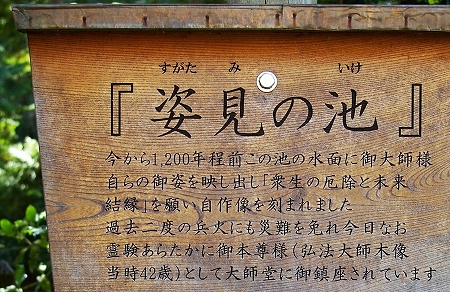 すがた み いけ
『姿見の池』
今から1,200年程前この池の水面に御大師様
自らの御姿を映し出し「衆生の厄除と未来
結縁」を願い自作像を刻まれました
過去二度の兵火にも災難を免れ今日なお
霊験あらたかに御本尊様(弘法大師木像
当時42歳)として大師堂に御鎮座されています